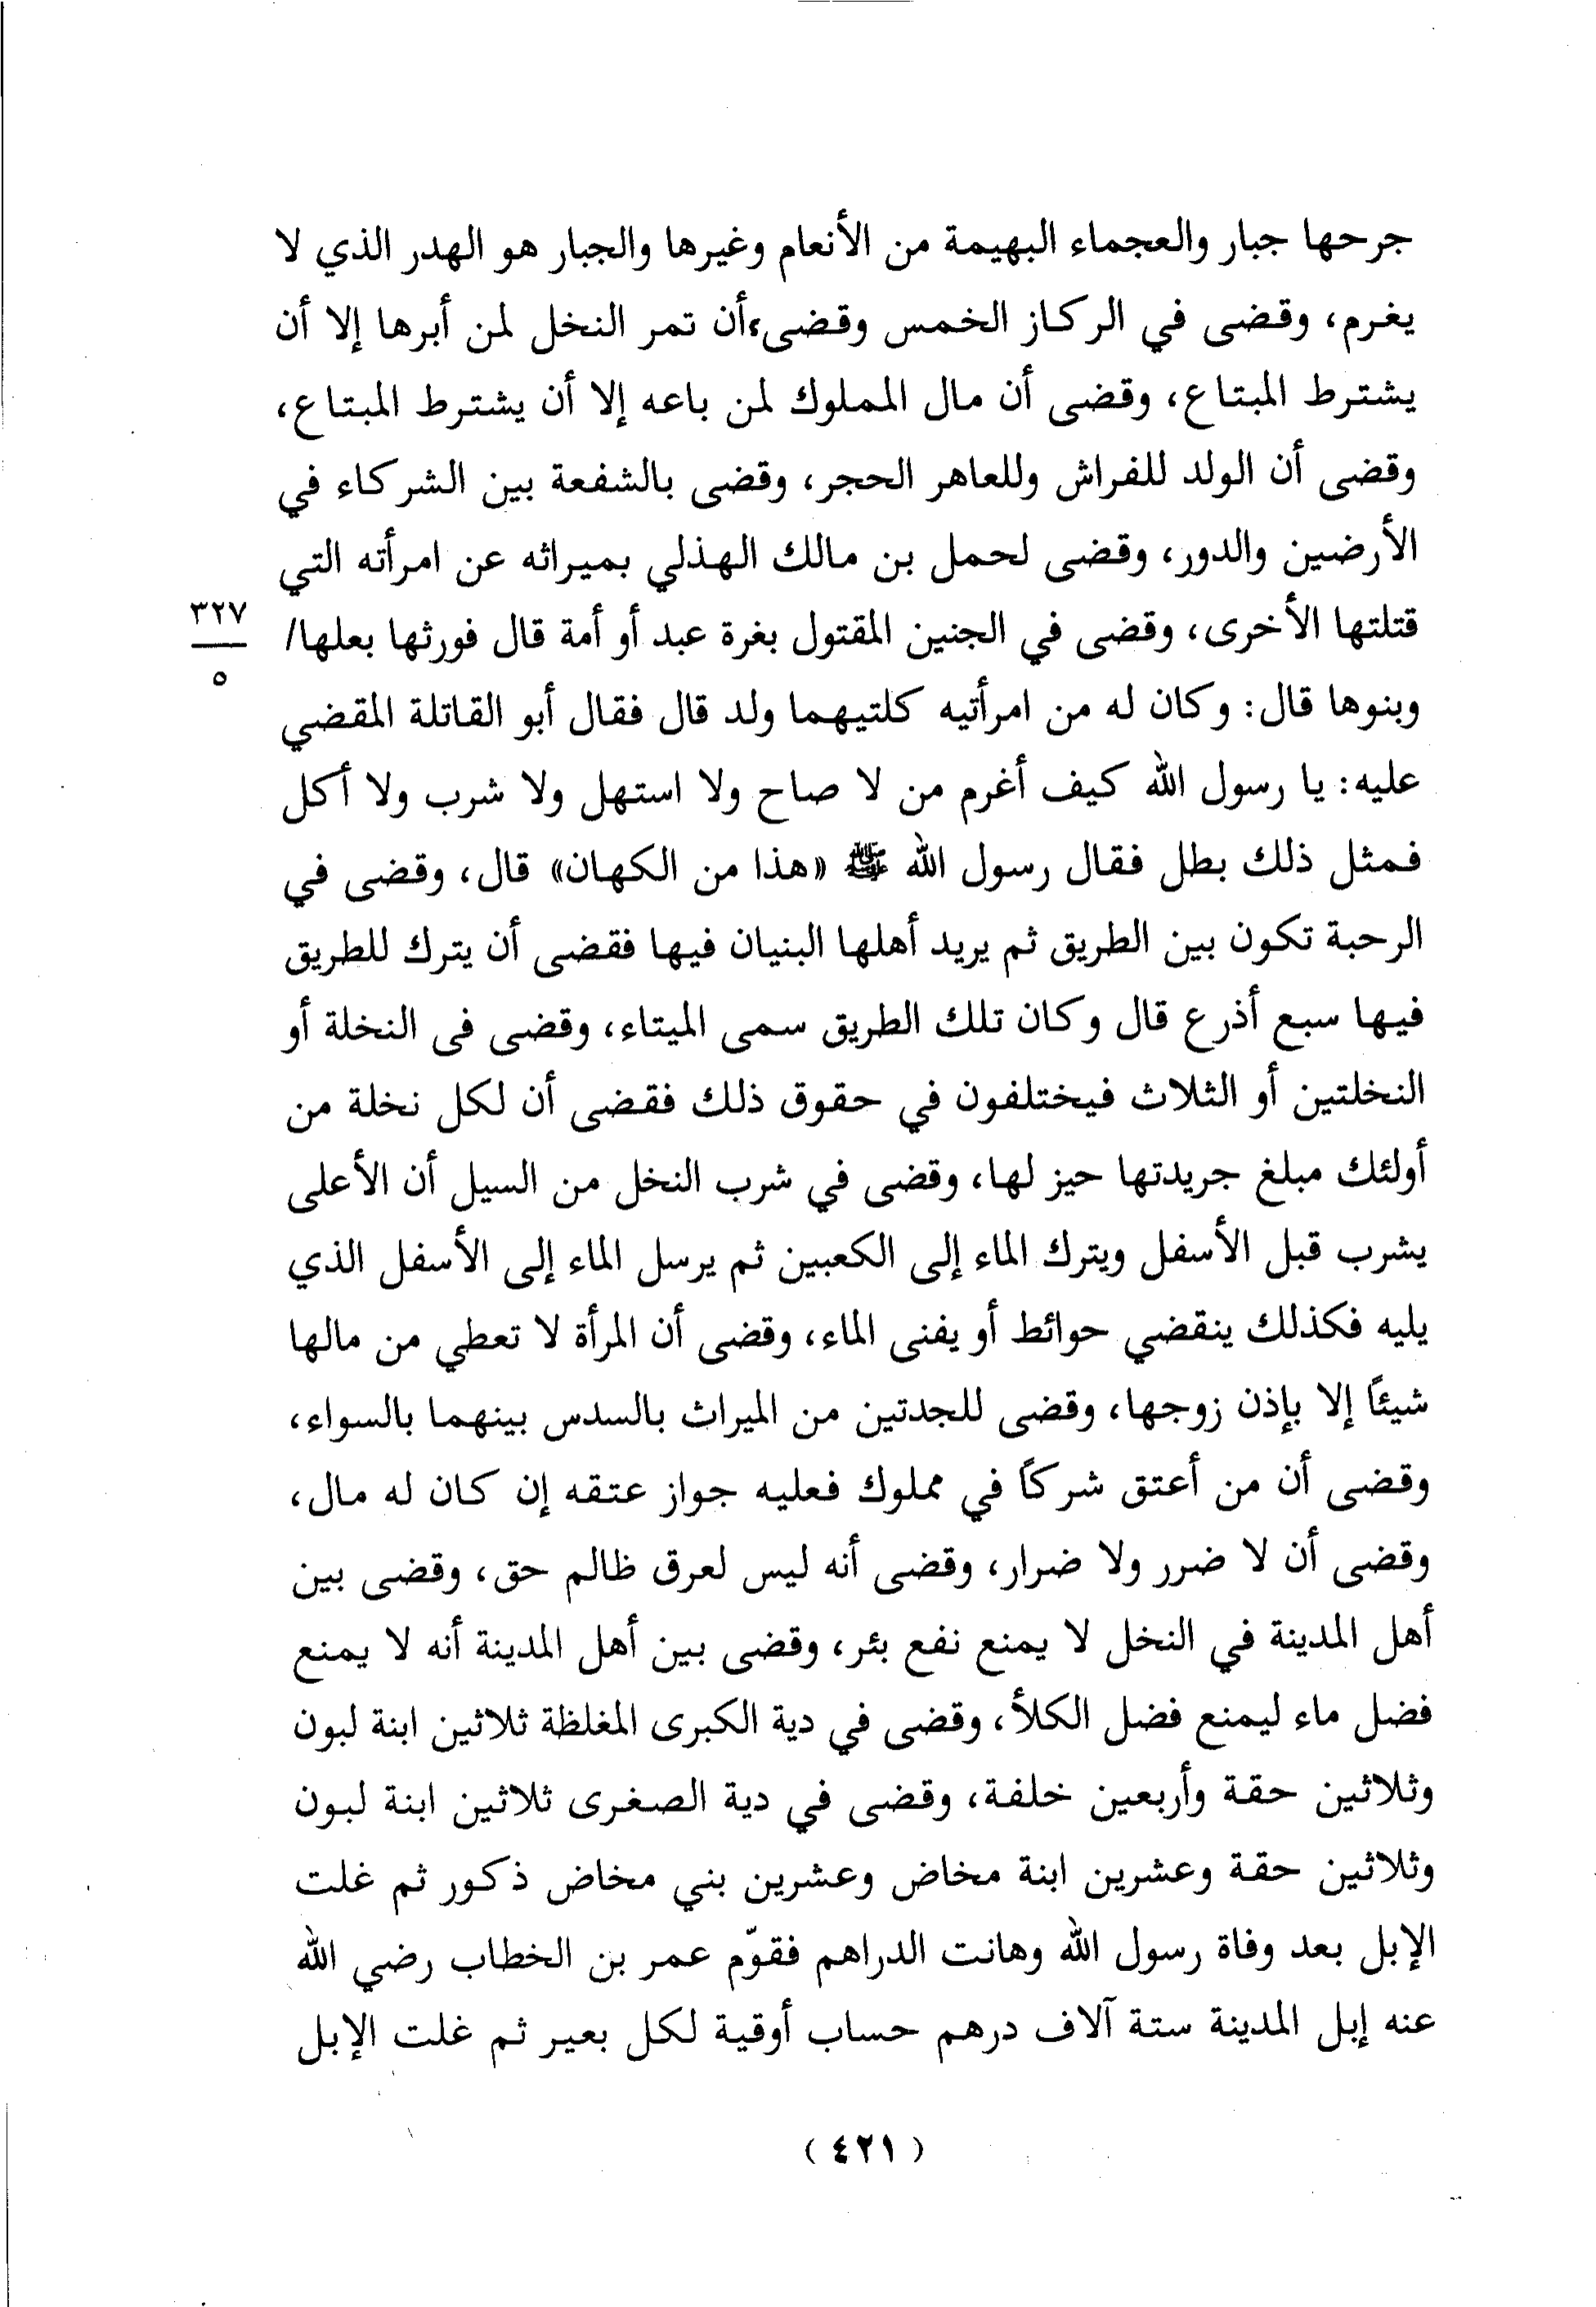 جرحها جبار والعجماء البهيمة من الأنعام وغيرها والجبار هو الهدر الذي لا
يغرم، وقضى في الركاز الخمس وقضى أن تمر النخل لمن أبرها إلا أن
يشترط المبتاع، وقضى أن مال المملوك لمن باعه إلا أن يشترط المبتاع،
وقضى أن الولد للفراش وللعاهر الحجر، وقضى بالشفعة بين الشركاء في
الأرضين والدور، وقضى لحمل بن مالك الهذلي بميراثه عن امرأته التي
قتلتها الأخرى، وقضى في الجنين المقتول بغرة عبد أو أمة قال فورثها بعلها/
٣٢٧
٥
وبنوها قال: وكان له من امرأتيه كلتيهما ولد قال فقال أبو القاتلة المقضي
عليه: يا رسول الله كيف أغرم من لا صاح ولا استهل ولا شرب ولا أكل
فمثل ذلك بطل فقال رسول الله ﷺ «هذا من الكهان» قال، وقضى في
الرحبة تكون بين الطريق ثم يريد أهلها البنيان فيها فقضى أن يترك للطريق
فيها سبع أذرع قال وكان تلك الطريق سمى الميتاء، وقضى فى النخلة أو
النخلتين أو الثلاث فيختلفون في حقوق ذلك فقضى أن لكل نخلة من
أولئك مبلغ جريدتها حيز لها، وقضى في شرب النخل من السيل أن الأعلى
يشرب قبل الأسفل ويترك الماء إلى الكعبين ثم يرسل الماء إلى الأسفل الذي
يليه فكذلك ينقضي حوائط أو يفنى الماء، وقضى أن المرأة لا تعطي من مالها
شيئاً إلا بإذن زوجها، وقضى للجدتين من الميراث بالسدس بينهما بالسواء،
وقضى أن من أعتق شركاً في مملوك فعليه جواز عتقه إن كان له مال،
وقضى أن لا ضرر ولا ضرار، وقضى أنه ليس لعرق ظالم حق، وقضى بين
أهل المدينة في النخل لا يمنع نفع بئر، وقضى بين أهل المدينة أنه لا يمنع
فضل ماء ليمنع فضل الكلأ، وقضى في دية الكبرى المغلظة ثلاثين ابنة لبون
وثلاثين حقة وأربعين خلفة، وقضى في دية الصغرى ثلاثين ابنة لبون
وثلاثين حقة وعشرين ابنة مخاض وعشرين بني مخاض ذكور ثم غلت
الإبل بعد وفاة رسول الله وهانت الدراهم فقوّم عمر بن الخطاب رضي الله
عنه إبل المدينة ستة آلاف درهم حساب أوقية لكل بعير ثم غلت الإبل
(٤٢١)